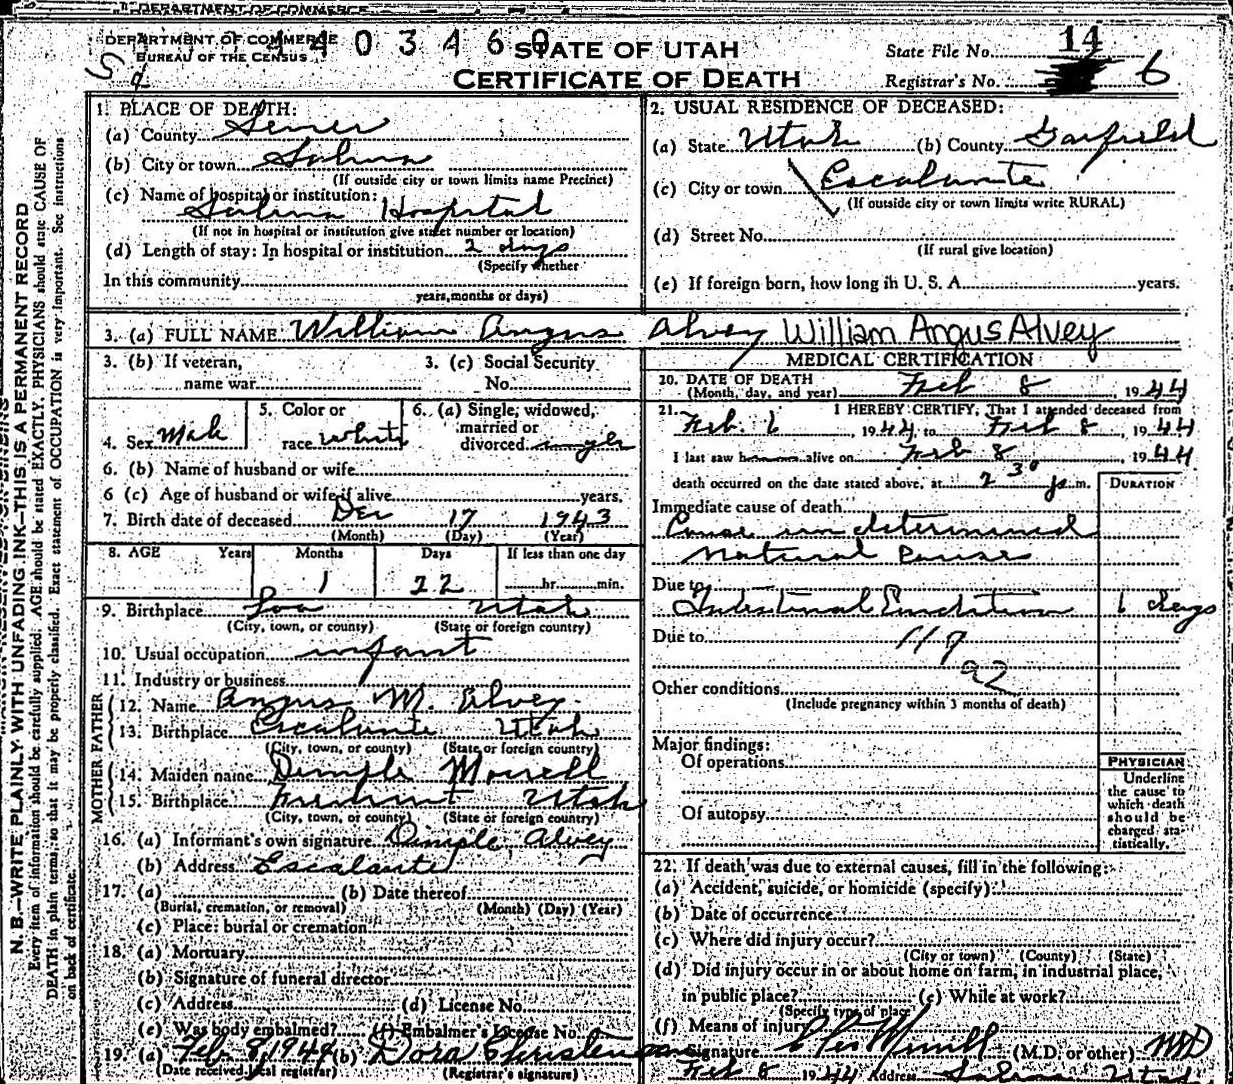 DEPARTMENT OF COMMERCE
DEPARTMENT OF COMMERCE
BUREAU OF THE CENSUS
4403460
STATE OF UTAH
CERTIFICATE OF DEATH
State File No. 14
Registrar's No. 6
N. B.—WRITE PLAINLY WITH UNFADING INK—THIS IS A PERMANENT RECORD
Every item of information should be carefully supplied. AGE should be stated EXACTLY. PHYSICIANS should state CAUSE OF
DEATH in plain terms, so that it may be properly classified. Exact statement of OCCUPATION is very important. See instructions
on back of certificate.
1. PLACE OF DEATH:
(a) County Sevier
(b) City or town Salina
(If outside city or town limits name Precinct)
(c) Name of hospital or institution:
Salina Hospital
(If not in hospital or institution give street number or location)
(d) Length of stay: In hospital or institution 2 days
(Specify whether
In this community
years, months or days)
2. USUAL RESIDENCE OF DECEASED:
(a) State Utah (b) County Garfield
(c) City or town Escalante
(If outside city or town limits write RURAL)
(d) Street No.
(If rural give location)
(e) If foreign born, how long in U. S. A. years.
3. (a) FULL NAME William Angus Alvey William Angus Alvey
3. (b) If veteran,
name war
3. (c) Social Security
No.
4. Sex Male
5. Color or
race White
6. (a) Single, widowed,
married or
divorced single
6. (b) Name of husband or wife
6 (c) Age of husband or wife if alive years.
7. Birth date of deceased Dec 17 1943
(Month) (Day) (Year)
8. AGE Years Months Days If less than one day
1 22 hr. min.
9. Birthplace Loa Utah
(City, town, or county) (State or foreign country)
10. Usual occupation infant
11. Industry or business
FATHER
12. Name Angus M. Alvey
13. Birthplace Escalante Utah
(City, town, or county) (State or foreign country)
MOTHER
14. Maiden name Dimple Morrell
15. Birthplace Fremont Utah
(City, town, or county) (State or foreign country)
16. (a) Informant's own signature Dimple Alvey
(b) Address Escalante
17. (a) (b) Date thereof
(Burial, cremation, or removal) (Month) (Day) (Year)
(c) Place: burial or cremation
18. (a) Mortuary
(b) Signature of funeral director
(c) Address (d) License No.
(e) Was body embalmed? (f) Embalmer's License No.
19. (a) Feb 8, 1944 (b) Dora Christensen
(Date received local registrar) (Registrar's signature)
MEDICAL CERTIFICATION
20. DATE OF DEATH
(Month, day, and year) Feb 8 1944
21. I HEREBY CERTIFY, That I attended deceased from
Feb. 6, 1944 to Feb 8, 1944
I last saw h alive on Feb 8, 1944
death occurred on the date stated above, at 2 30 p. m.
DURATION
Immediate cause of death
Cause undetermined
Natural Cause
Due to
Intestinal Condition 6 days
Due to 119
92
Other conditions
(Include pregnancy within 3 months of death)
Major findings:
Of operations
Of autopsy
PHYSICIAN
Underline
the cause to
which death
should be
charged sta-
tistically.
22. If death was due to external causes, fill in the following:
(a) Accident, suicide, or homicide (specify)
(b) Date of occurrence
(c) Where did injury occur?
(City or town) (County) (State)
(d) Did injury occur in or about home on farm, in industrial place,
in public place? (e) While at work?
(Specify type of place)
(f) Means of injury
Signature (M.D. or other) MD
Feb 8 1944 Address Salina Utah